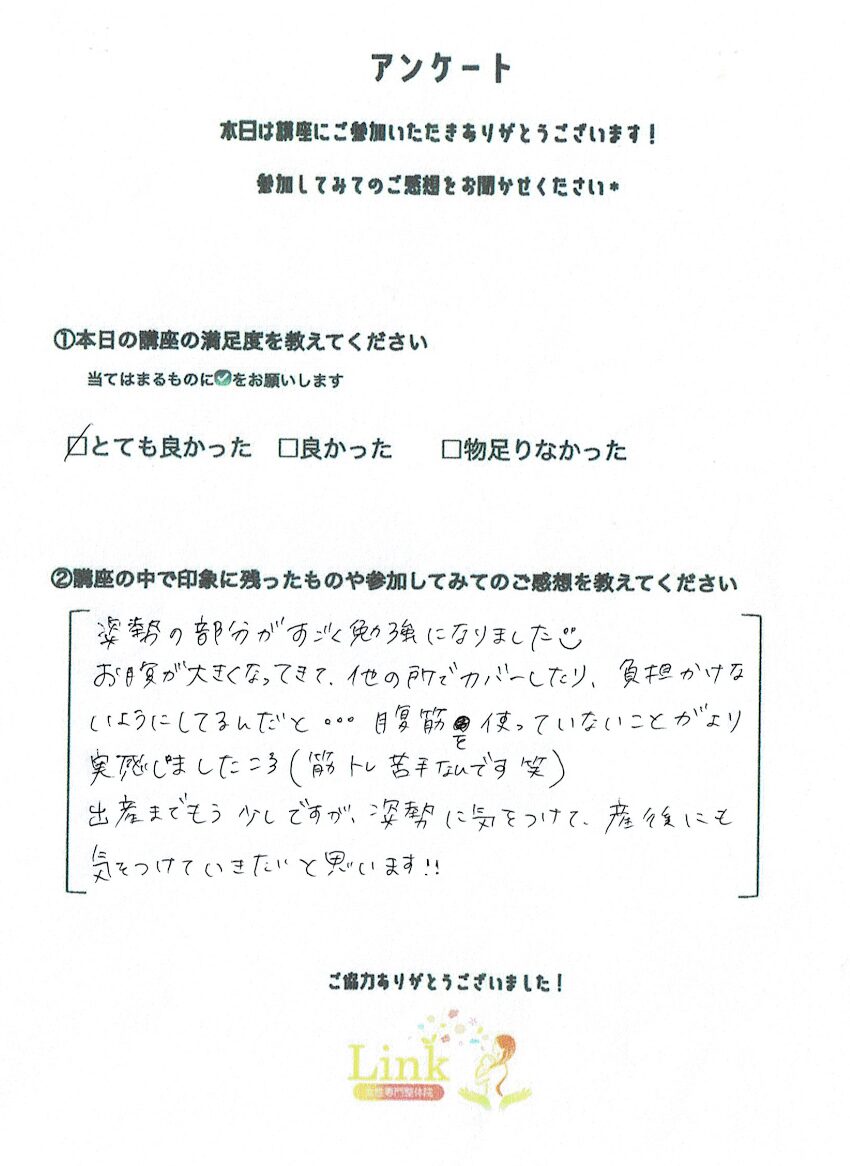 アンケート
本日は講座にご参加いただきありがとうございます！
参加してみてのご感想をお聞かせください*
①本日の講座の満足度を教えてください
当てはまるものに✅をお願いします
☑とても良かった □良かった □物足りなかった
②講座の中で印象に残ったものや参加してみてのご感想を教えてください
姿勢の部分がすごく勉強になりました
お腹が大きくなってきて、他の所でカバーしたり、負担かけな
いようにしてるんだと…腹筋を使っていないことがより
実感じましたころ(筋トレ苦手なんです笑)
出産までもう少しですが、姿勢に気をつけて、産後にも
気をつけていきたいと思います!!
ご協力ありがとうございました！
Link
女性専門整体院